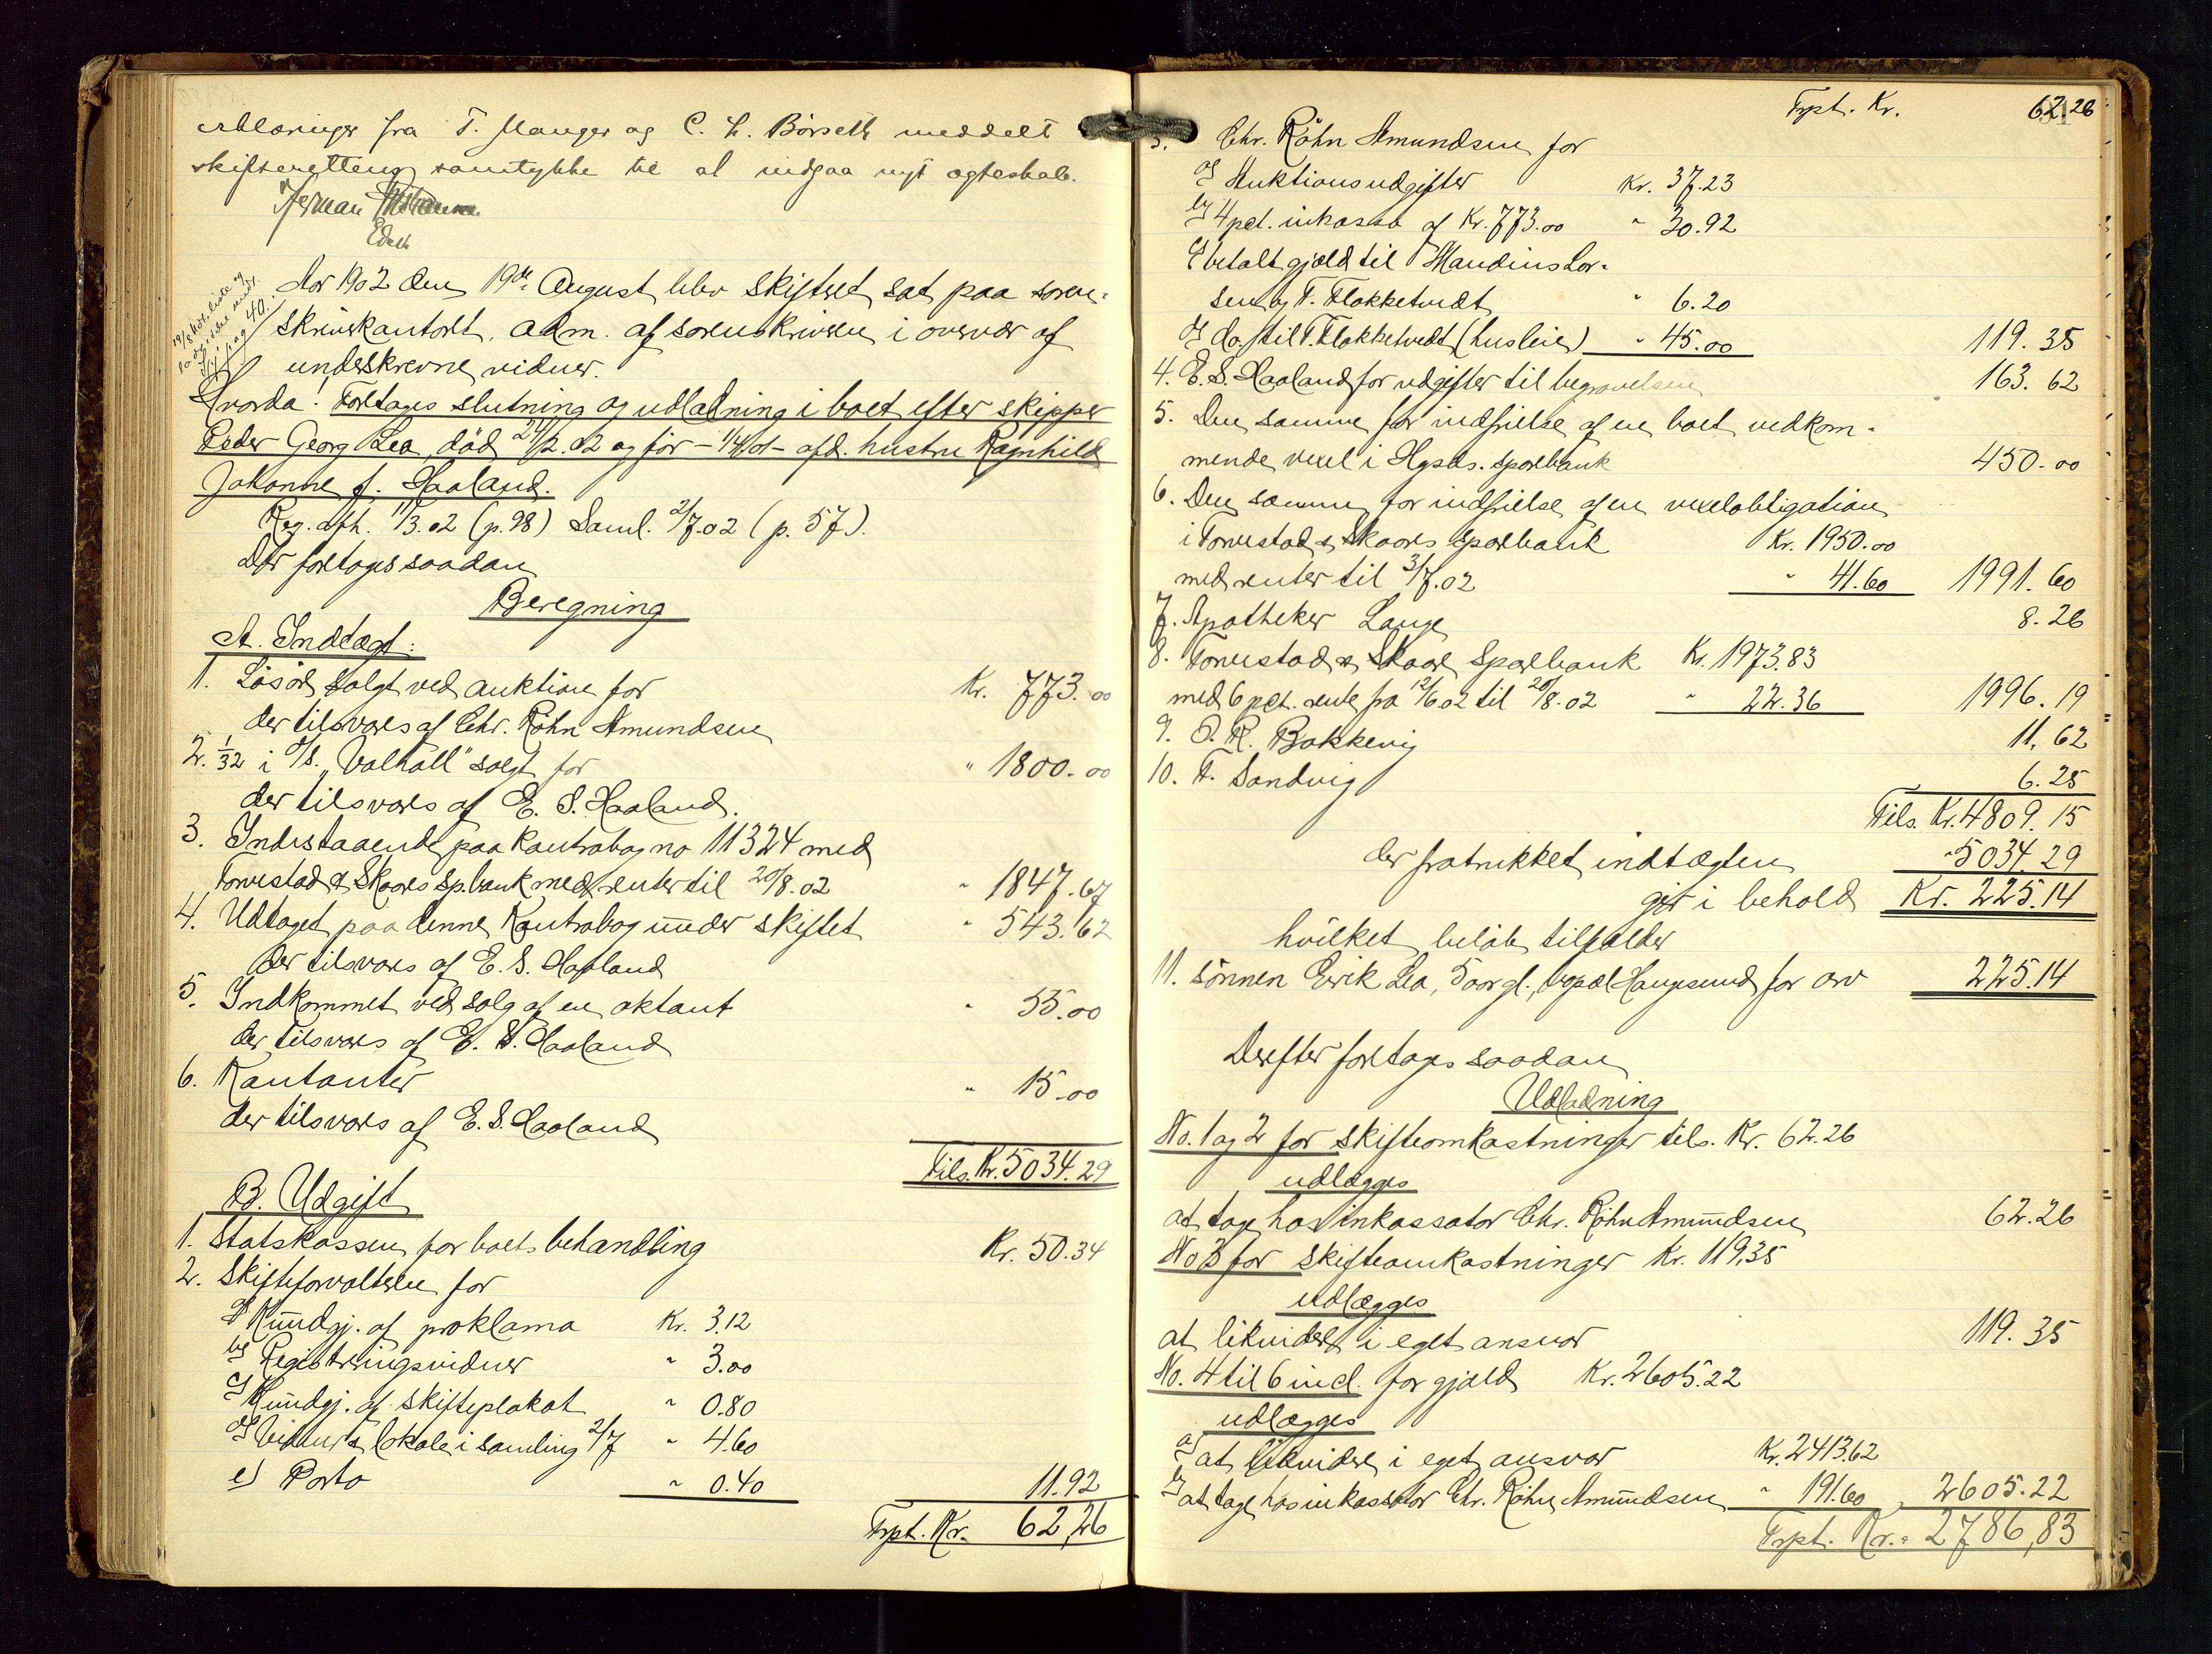 erklæringer fra T. Mauger og C. L. Børseth meddelt
skifterettens samtykke til at indgaa nyt ægteskab.
Herman
Aar 1902 den 19de August blev skifteret sat paa soren-
skriverkontoret, adm. af sorenskriveren i overvær af
underskrevne vidner.
Hvorda! Foretages slutning og udlodning i boet efter skipper
Peder Georg Lea, død 24/2.02 og før – 1/4.01 – afd. hustru Ragnhild
Johanne f. Haaland.
Reg. afh. 11/3.02 (p. 98) Saml. 2/7.02 (p. 57).
Der foretages saadan
Beregning
A. Indtægt:
1. Løsøre solgt ved auktion for Kr. 773.00
der tilsvares af Chr. Røhn Amundsen
2. 1/32 i D/S. "Valhall" solgt for " 1800.00
der tilsvares af E. S. Haaland.
3. Indestaaende paa Kontrabog no 11324 med
Torvestad & Skaares sp.bank med renter til 20/8.02 " 1847.67
4. Udtaget paa denne Kontrabog under skiftet " 543.62
der tilsvares af E. S. Haaland
5. Indkommet ved salg af en oktant " 55.00
der tilsvares af E. S. Haaland
6. Kontanter " 15.00
der tilsvares af E. S. Haaland
Tils. Kr. 5034.29
B. Udgift
1. Statskassen for boets behandling Kr. 50.34
2. Skifteforvalteren for
a) Kundgj. af proklama Kr. 3.12
b) Registreringsvidner " 3.00
c) Kundgj. af skifteplakat " 0.80
d) Vidner & lokale i samling 2/7 " 4.60
e) Porto " 0.40 11.92
Trpt. Kr. 62,26
Trpt. Kr. 62.26
3. Chr. Røhn Amundsen for
a) Auktionsudgifter Kr. 37.23
b) 4 pct. inkasso af Kr. 773.00 " 30.92
c) betalt gjæld til Maudius Lor-
sen og T. Flokketvedt " 6.20
d) do. til T. Flokketvedt (husleie) " 45.00 119.35
4. E. S. Haaland for udgifter til begravelsen 163.62
5. Den samme for indfrielse af en boet vedkom-
mende vexel i Hgsds. sparebank 450.00
6. Den samme for indfrielse af en vexelobligation
i Torvestad & Skaares Sparebank Kr. 1950.00
med renter til 3/7.02 " 41.60 1991.60
7. Apotheker Lange 8.26
8. Torvestad & Skaare Sparebank Kr. 1973.83
med 6 pct. rente fra 12/6 02 til 20/8.02 " 22.36 1996.19
9. O. R. Bakkevig 11,62
10. T. Sandvig 6.25
Tils. Kr. 4809.15
der fratrukket indtægten " 5034.29
gjør i behold Kr. 225.14
hvilket beløb tilfalder
11. sønnen Eirik Lea, 5 aar gl., bopæl Haugesund for arv 225.14
Derefter foretages saadan
Udlodning
No. 1 og 2 for skifteomkostninger tils. Kr. 62.26
udlægges
at tage hos inkassator Chr. Røhn Amundsen 62.26
No 3 for skifteomkostninger Kr. 119,35
udlægges
at likvidere i eget ansvar 119.35
No. 4 til 6 incl. for gjæld Kr. 2605.22
udlægges
a) at likvidere i eget ansvar Kr. 2413.62
b) at tage hos inkassator Chr. Røhn Amundsen " 191.60 2605.22
Trpt. Kr. 2786,83